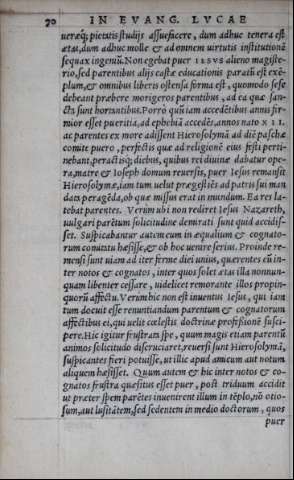 70 IN EVANG. LVCAE
ueræq; pietatis studijs assuefacere, dum adhuc tenera est
ætas, dum adhuc molle & ad omnem uirtutis institutionē
sequax ingeniū. Non egebat puer IESVS alieno magiste-
rio, sed parentibus alijs castæ educationis parati est exē-
plum, & omnibus liberis ostensa forma est, quomodo sese
debeant præbere morigeros parentibus, ad ea quæ san-
cta sunt hortantibus. Porrò quū iam accedētibus annis fir-
mior esset pueritia, ad ephebiā accedēs, annos nato XII.
ac parentes ex more adissent Hierosolymā ad diē paschæ
comite puero, perfectis quæ ad religionē eius festi perti-
nebant, peractisq; diebus, quibus rei diuinæ dabatur ope-
ra, matre & Ioseph domum reuersis, puer Iesus remansit
Hierosolymæ, iam tum uelut prægestiēs ad patris sui man
data peragēda, ob quæ missus erat in mundum. Ea res la-
tebat parentes. Verùm ubi non rediret Iesus Nazareth,
uulgari parētum solicitudine demirati sunt quid accidis-
set. Suspicabantur autem eum in æqualium & cognato-
rum conuictu hæsisse, & ob hoc uenire seriùs. Proinde re-
mensi sunt uiam ad iter ferme diei unius, querentes eū in-
ter notos & cognatos, inter quos solet ætas illa nonnun-
quam libenter cessare, uidelicet remorante illos propin-
quorū affectu. Verùm hic non est inuentus Iesus, qui iam
tum docuit esse renuntiandum parentum & cognatorum
affectibus ei, qui uelit cœlestis doctrinæ professionē susci-
pere. Hic igitur frustrati spe, quum magis etiam parentū
animos solicitudo discruciaret, reuersi sunt Hierosolymā,
suspicantes fieri potuisse, ut illic apud amicum aut notum
aliquem hæsisset. Quum autem & hic inter notos & co-
gnatos frustra quæsitus esset puer, post triduum accidit
ut præter spem parētes inuenirent illum in tēplo, nō otio-
sum, aut lusitātem, sed sedentem in medio doctorum, quos
puer